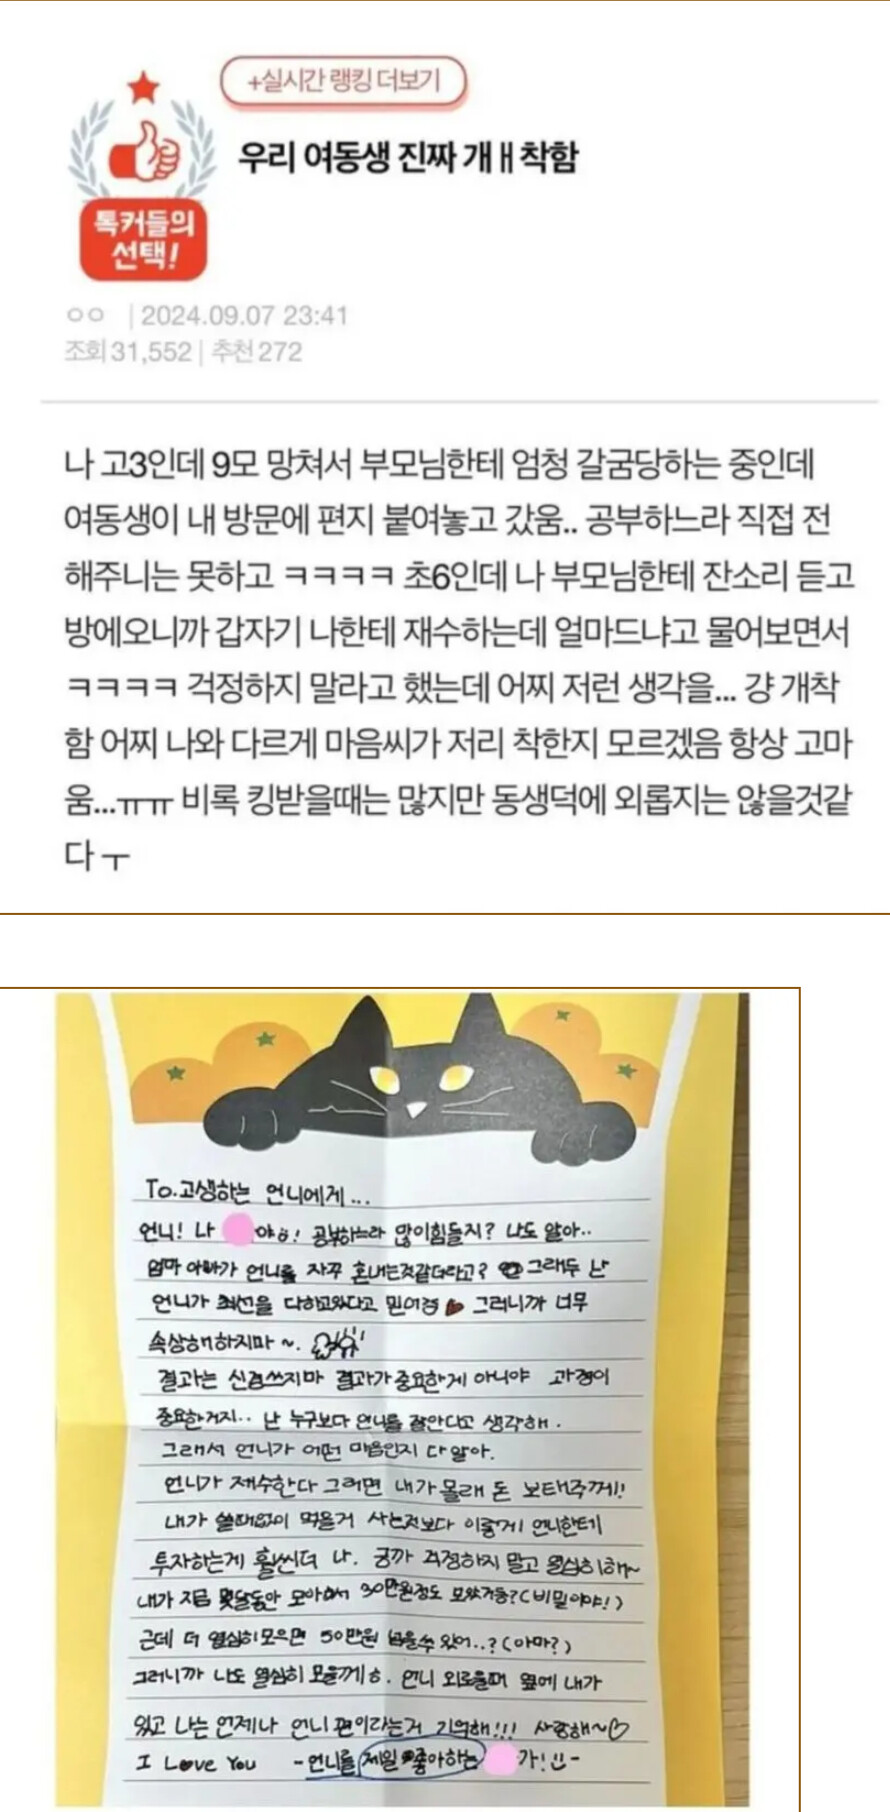 +실시간 랭킹 더보기
우리 여동생 진짜 개ㅐ착함
톡커들의
선택!
ㅇㅇ | 2024.09.07 23:41
조회 31,552 | 추천 272
나 고3인데 9모 망쳐서 부모님한테 엄청 갈굼당하는 중인데
여동생이 내 방문에 편지 붙여놓고 갔움.. 공부하느라 직접 전
해주니는 못하고 ㅋㅋㅋㅋ 초6인데 나 부모님한테 잔소리 듣고
방에오니까 갑자기 나한테 재수하는데 얼마드냐고 물어보면서
ㅋㅋㅋㅋ 걱정하지 말라고 했는데 어찌 저런 생각을... 걍 개착
함 어찌 나와 다르게 마음씨가 저리 착한지 모르겠음 항상 고마
움...ㅠㅠ 비록 킹받을때는 많지만 동생덕에 외롭지는 않을것같
다 ㅜ
To.고생하는 언니에게...
언니! 나 야ㅎ! 공부하느라 많이힘들지? 나도 알아..
엄마 아빠가 언니를 자꾸 혼내는것같더라고? 그래두 난
언니가 최선을 다하고왔다고 믿어경 그러니까 너무
속상해하지마~.
결과는 신경쓰지마 결과가 중요한게 아니야 과정이
중요한거지.. 난 누구보다 언니를 잘안다고 생각해.
그래서 언니가 어떤 마음인지 다 알아.
언니가 재수한다 그러면 내가 몰래 돈 보태주께!
내가 쓸때없이 먹을거 사는것보다 이렇게 언니한테
투자하는게 훨씬더 나. 긍까 걱정하지 말고 열심히해~
내가 지금 몇달동안 모아서 30만원정도 모았거등?(비밀이야!)
근데 더 열심히모으면 50만원 넘을수 있어..?(아마?)
그러니까 나도 열심히 모을께ㅎ. 언니 외로울때 옆에 내가
있고 나는 언제나 언니 편이라는거 기억해!!! 사랑해~♡
I Love You -언니를 제일 좋아하는 가!-